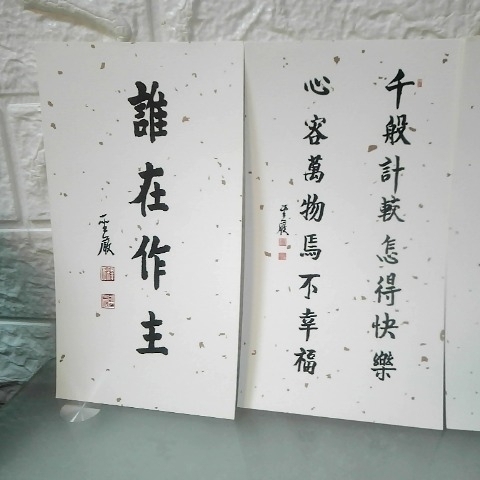 千般計較怎得快樂
心容萬物焉不幸福
誰在作主